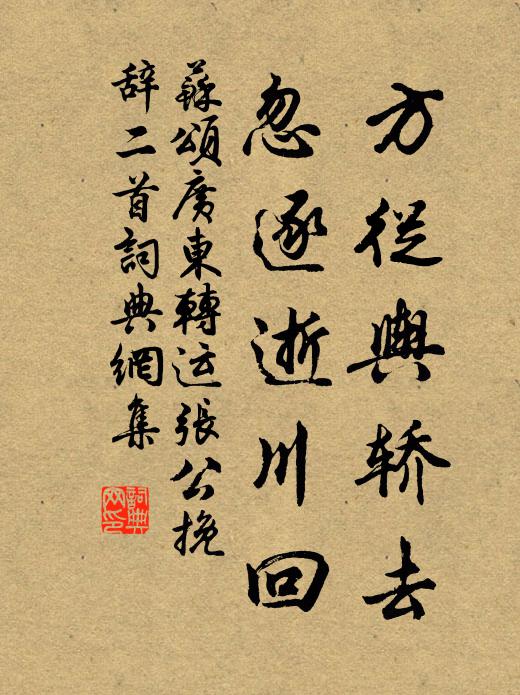 方從輿轿去
忽逐逝川回
蘇頌廣東轉运張公挽
辞二首詞典網集
詞典
网印